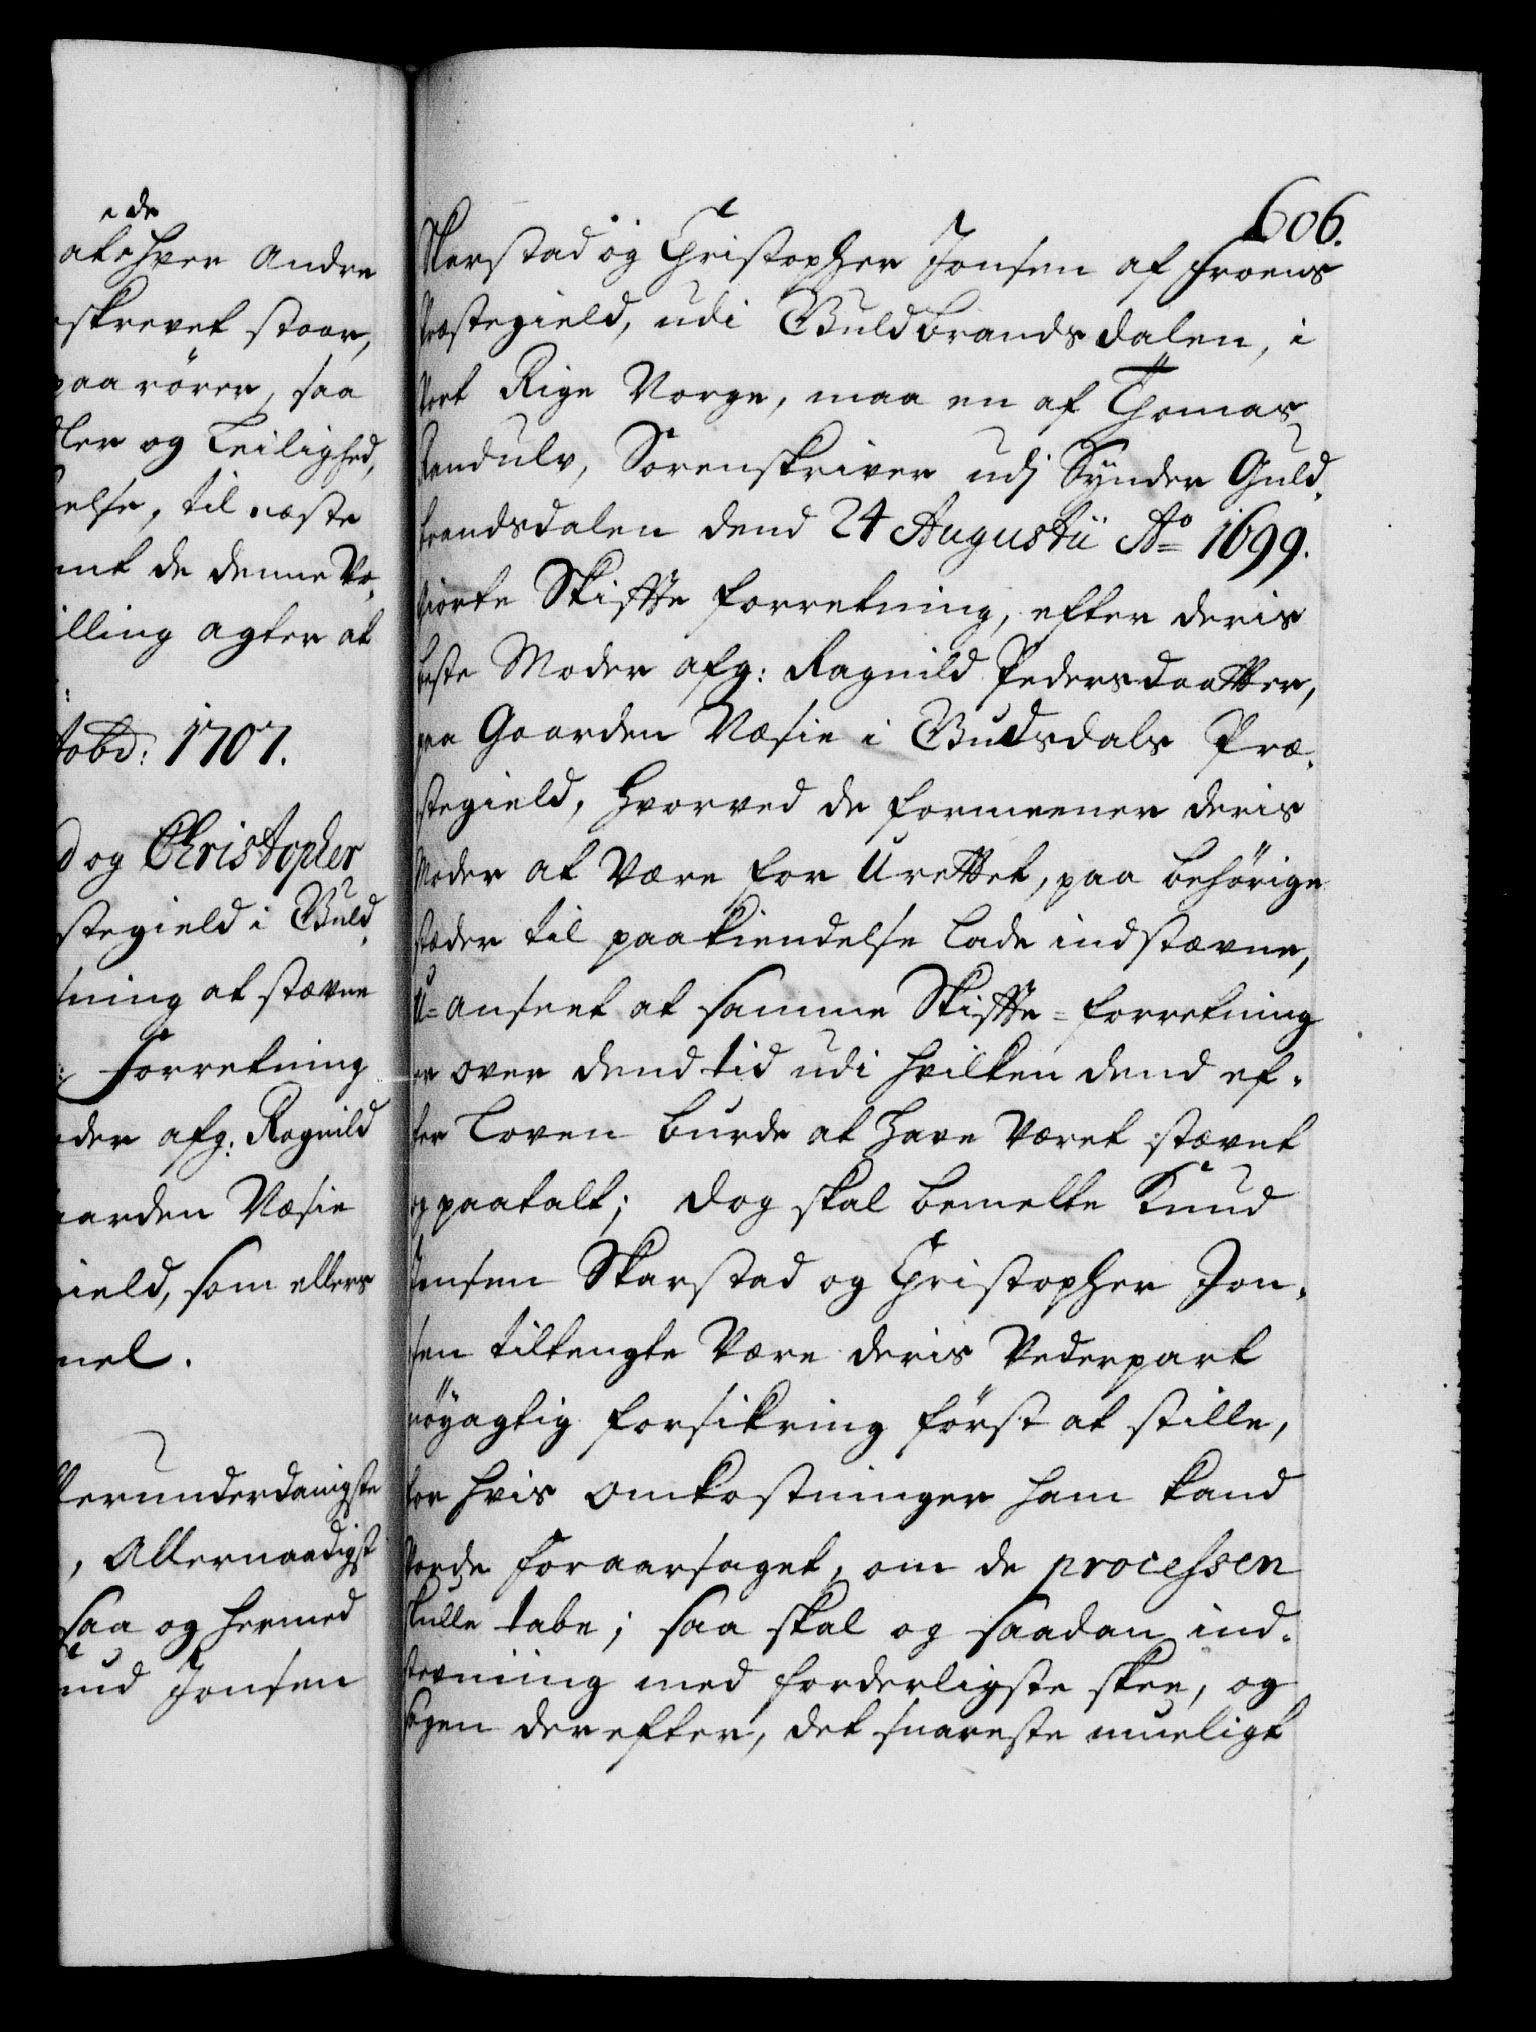 e de
at hver Andre
skrevet staar,
paa rörer, saa
ler og Leilighed,
else, til neste
mt de denne Vo,
illing agter at
Octobd: 1707.
d og Christopher
stegield i Guld,
sning at stævne
: Forretning
der afg: Ragnild
aarden Næsie
ield, som ellers
nel.
llerunderdanigste
, Allernaadigst
saa og hermed
nud Jonsen
606.
Skarstad og Christopher Jonsen af Froens
Præstegield, udi Guldbrandsdalen, i
Vort Rige Norge, maa en af Thomas
Randulv, Sorenskriver udj Sÿnder Guld,
brandsdalen dend 24 Augustii Ao 1699.
giorte Skiffte forretning, efter deris
beste Moder afg: Ragnild Pedersdaatter,
paa Gaarden Næsie i Gudsdals Præ,
stegield, hvorved de formeener deris
Moder at være for Urettet, paa behörige
stæder til paakiendelse lade indstævne,
U=anseet at samme Skiffte=forretning
er over dend tid udi hvilken dend ef,
ter Loven burde at have været stævnet
og paatalt; dog skal bemelte Knud
Jonsen Skarstad og Christopher Jon,
sen tiltengte være deris Vederpart
nöÿagtig forsikring först at stille,
for hvis omkostninger ham kand
Vorde foraarsaget, om de processen
skulle tabe; saa skal og saadan ind,
stevning med forderligste skee, og
sagen derefter, det snareste mueligt